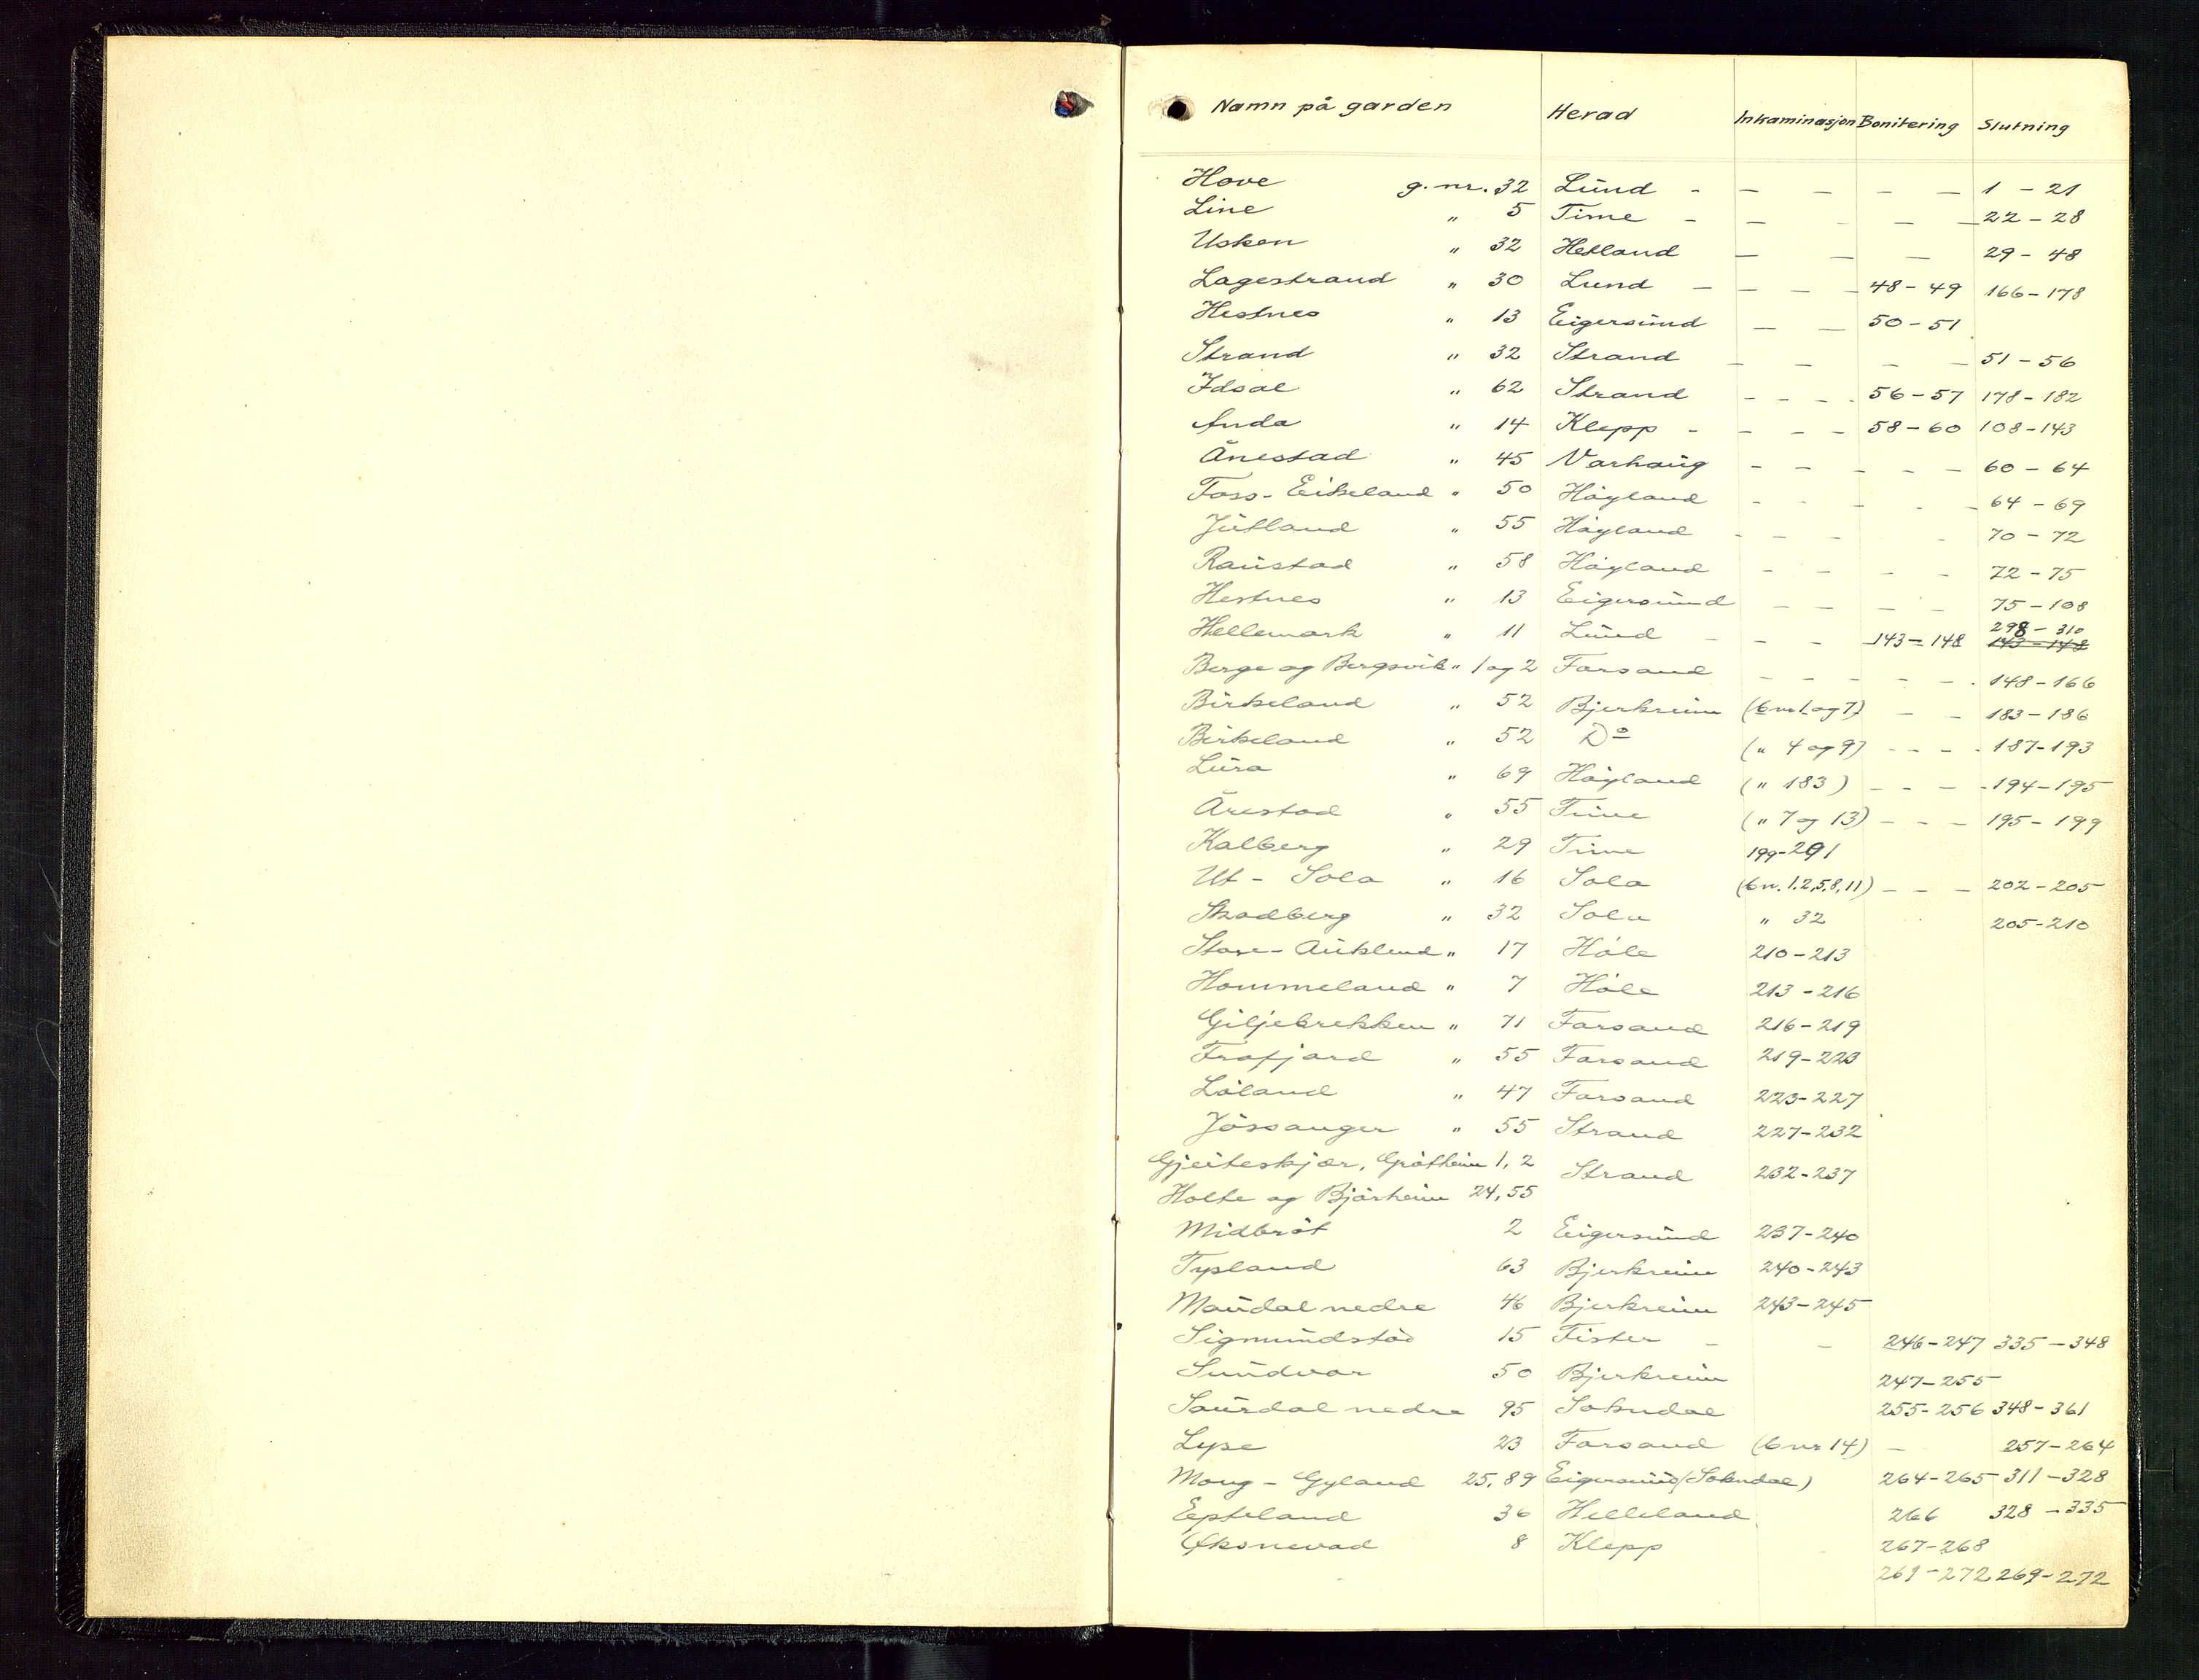 Namn på garden Herad Inkaminasjon Bonitering Slutning
Hove g. nr. 32 Lund - - - - - 1 - 21
Line " 5 Time - - - - - 22 - 28
Usken " 32 Hetland - - - 29 - 48
Lagestrand " 30 Lund - - - - 48 - 49 166 - 178
Hestnes " 13 Eigersund - - 50 - 51
Strand " 32 Strand - - - - 51 - 56
Idsal " 62 Strand - - - - 56 - 57 178 - 182
Anda " 14 Klepp - - - - 58 - 60 108 - 143
Ånestad " 45 Varhaug - - - - - 60 - 64
Foss - Eikeland " 50 Høyland - - - - - 64 - 69
Jutland " 55 Høyland - - - - 70 - 72
Raustad " 58 Høyland - - - - 72 - 75
Hestnes " 13 Eigersund - - - - 75 - 108
Hellemark " 11 Lund - - - 143 - 148 298 - 310 143 - 148
Berge og Bergsvik " 1 og 2 Forsand - - - - - - 148 - 166
Birkeland " 52 Bjerkreim (bnr 1 og 7) - - 183 - 186
Birkeland " 52 Do (" 4 og 9) - - - - 187 - 193
Lura " 69 Høyland (" 183) - - - - 194 - 195
Årestad " 55 Time (" 7 og 13) - - - 195 - 199
Kalberg " 29 Time 199 - 291
Ut - Sola " 16 Sola (bn. 1, 2, 5, 8, 11) - - - 202 - 205
Skadberg " 32 Sola " 32 205 - 210
Store - Aukland " 17 Høle 210 - 213
Hommeland " 7 Høle 213 - 216
Giljebrekken " 71 Forsand 216 - 219
Frafjord " 55 Forsand 219 - 223
Løland " 47 Forsand 223 - 227
Jøssanger " 55 Strand 227 - 232
Gjeiteskjær, Grøtheim 1, 2 Strand 232 - 237
Holte og Bjørheim 24, 55
Midbrøt 2 Eigersund 237 - 240
Tysland 63 Bjerkreim 240 - 243
Maudal nedre 46 Bjerkreim 243 - 245
Sigmundstad 15 Fister - - 246 - 247 335 - 348
Sundvor 50 Bjerkreim 247 - 255
Saurdal nedre 95 Sokndal 255 - 256 348 - 361
Lyse 23 Forsand (bnr 14) - 257 - 264
Mong - Gyland 25, 89 Eigersund (Sokndal) 264 - 265 311 - 328
Epteland 36 Helleland 266 328 - 335
Øksnevad 8 Klepp 267 - 268
269 - 272 269 - 272